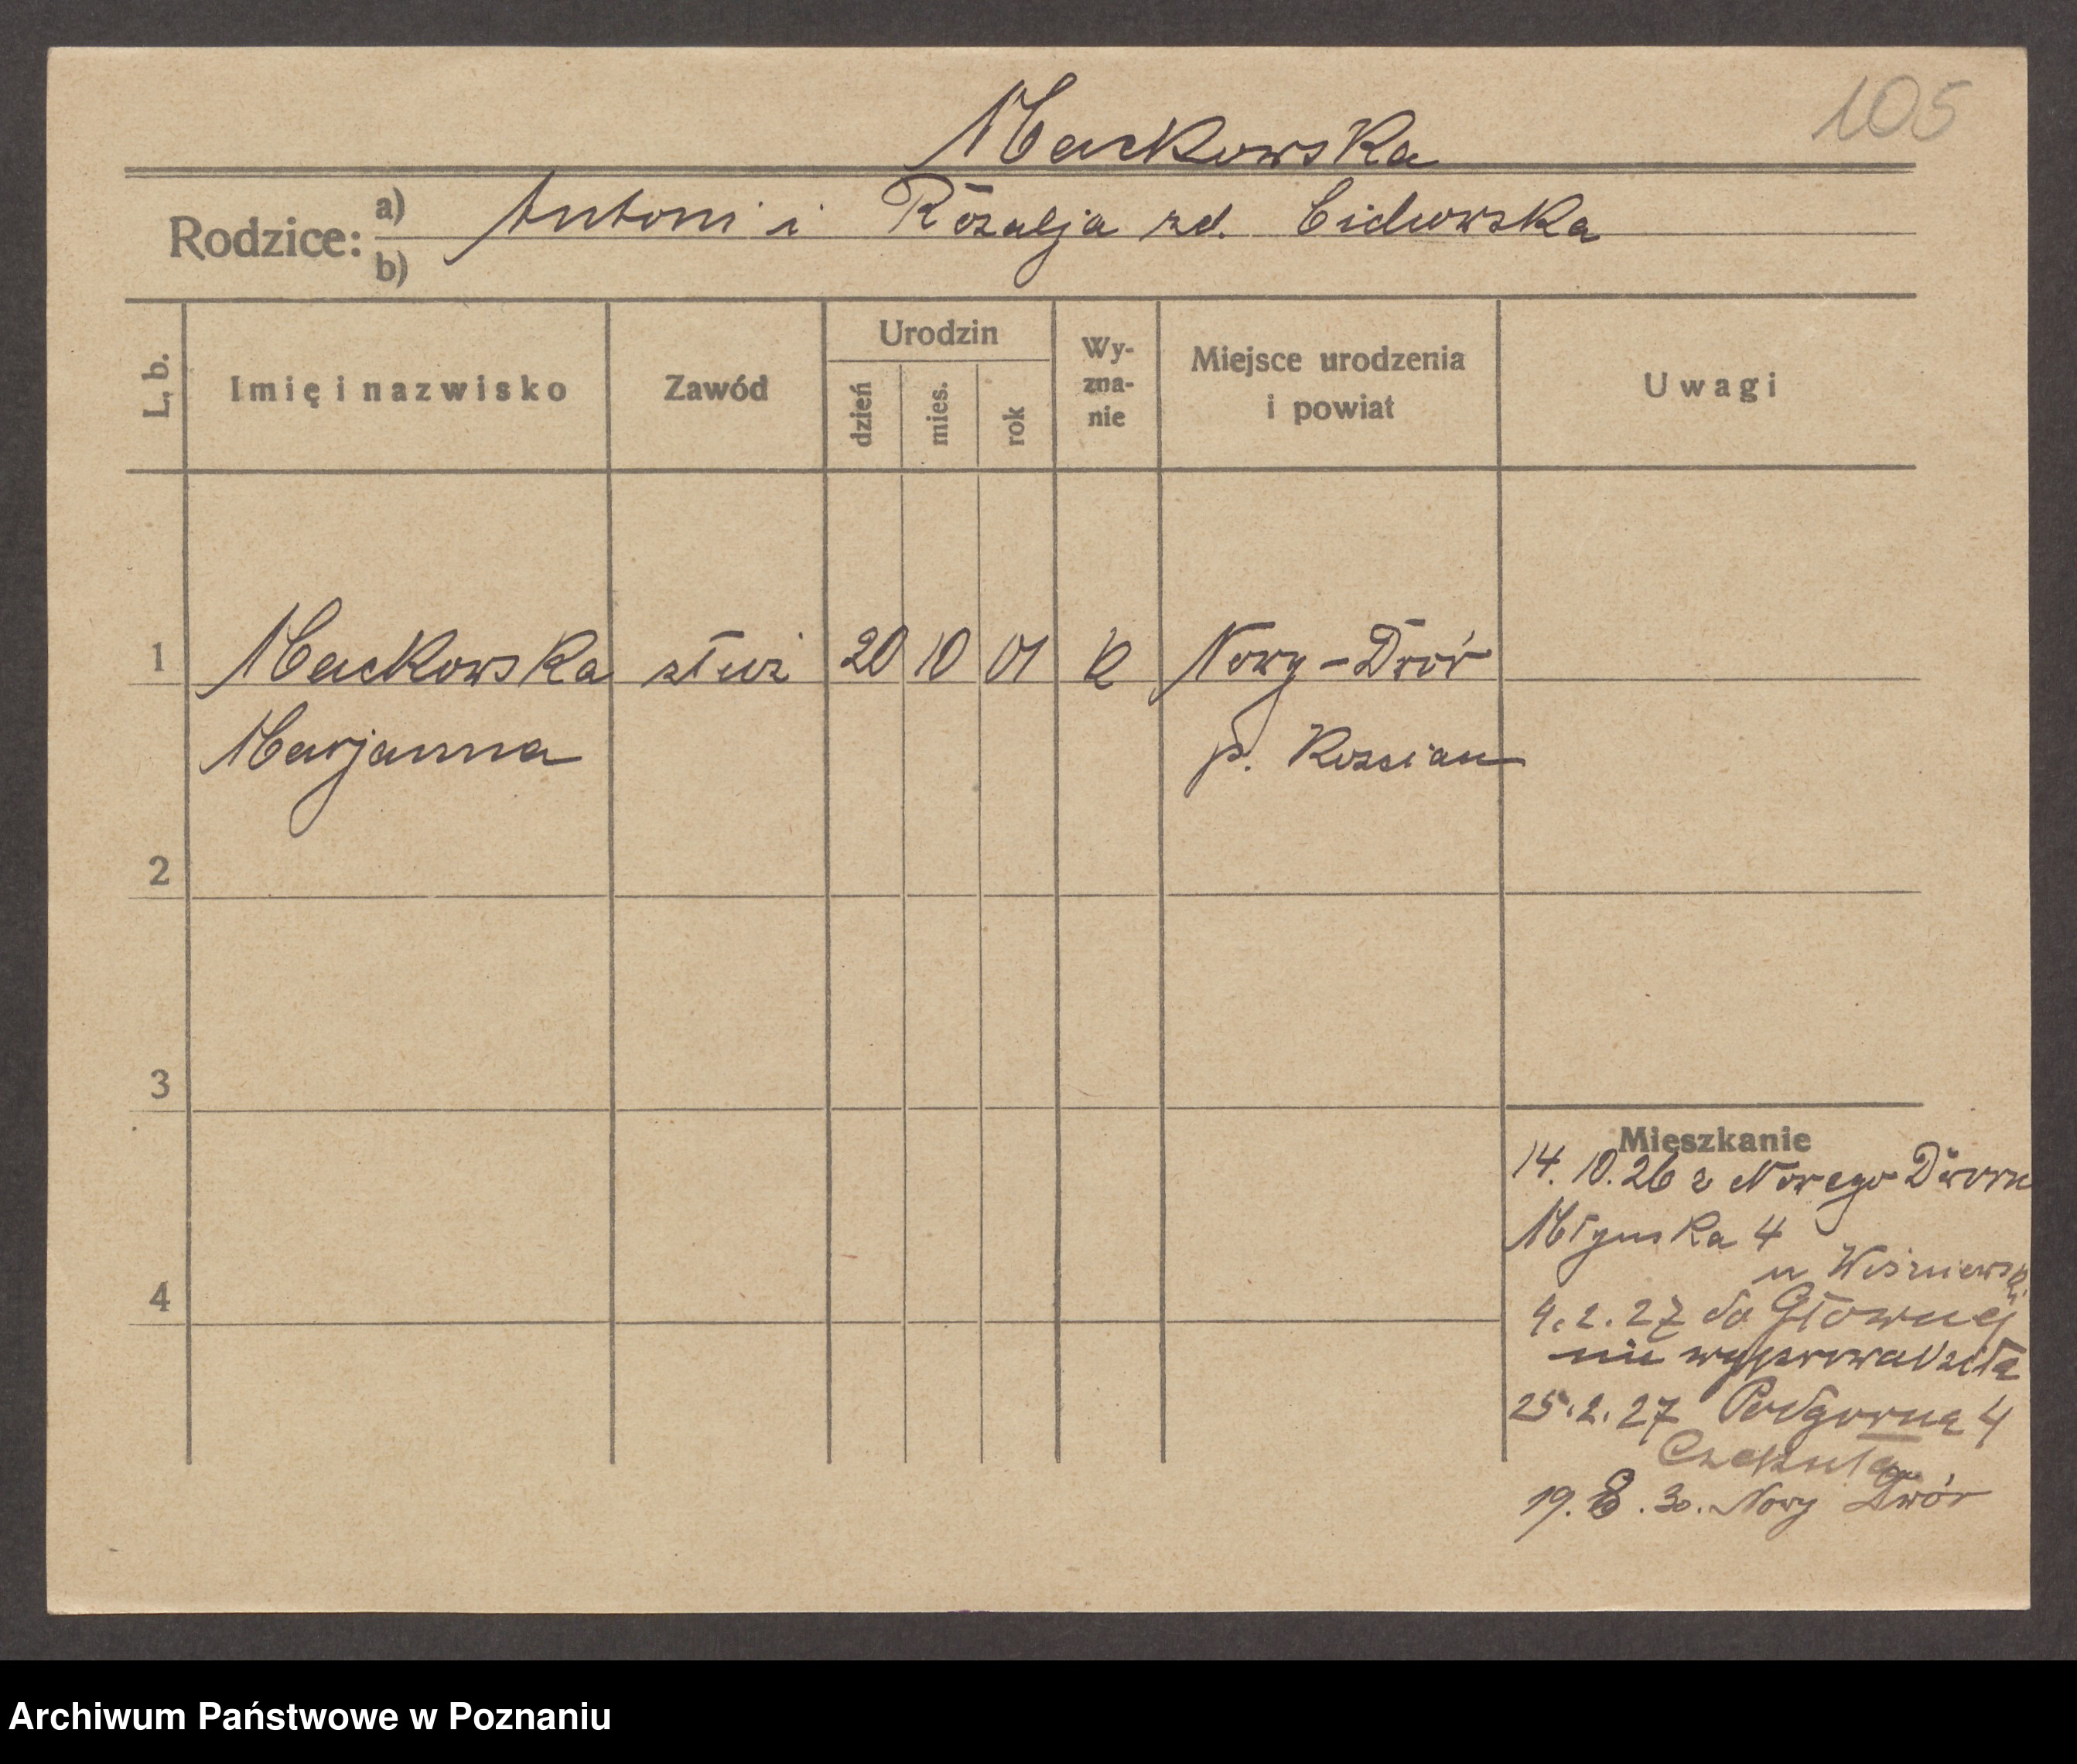 105
Mackowska
Rodzice: a) b) Antoni i Rozalja zd. Cichowska
L. b. Imię i nazwisko Zawód Urodzin dzień mies. rok Wy-zna-nie Miejsce urodzenia i powiat Uwagi
1 Mackowska służ 20 10 01 k Nowy-Dwór
Marjanna p. Koscian
2
3
4
Mieszkanie
14.10.26 z Nowego Dworu
Młyńska 4
u Wiśniewski
4.2.27 do Głownej
nie wyprowadziła
25.2.27 Podgorna 4
19.8.30. Nowy Dwór
Archiwum Państwowe w Poznaniu